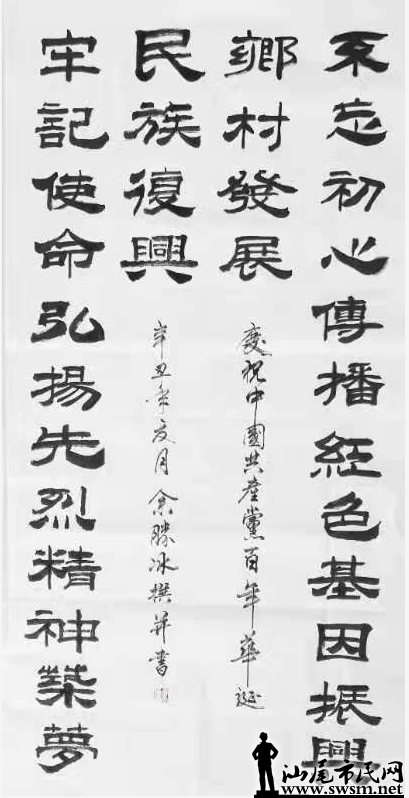 不忘初心傳播紅色基因振興
鄉村發展
牢記使命弘揚先烈精神築夢
民族復興
慶祝中國共產黨百年華誕
辛丑年夏月余冰撰并書
汕尾市民网
www.swsm.net